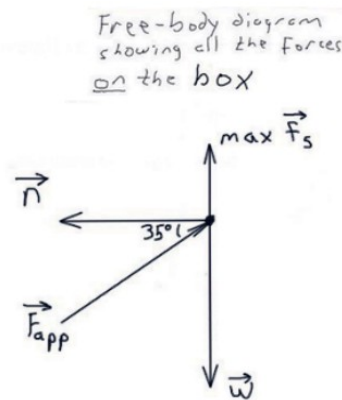 Free-body diagram
showing all the forces
on the box
max F⃗s
n⃗
35°
F⃗app
w⃗